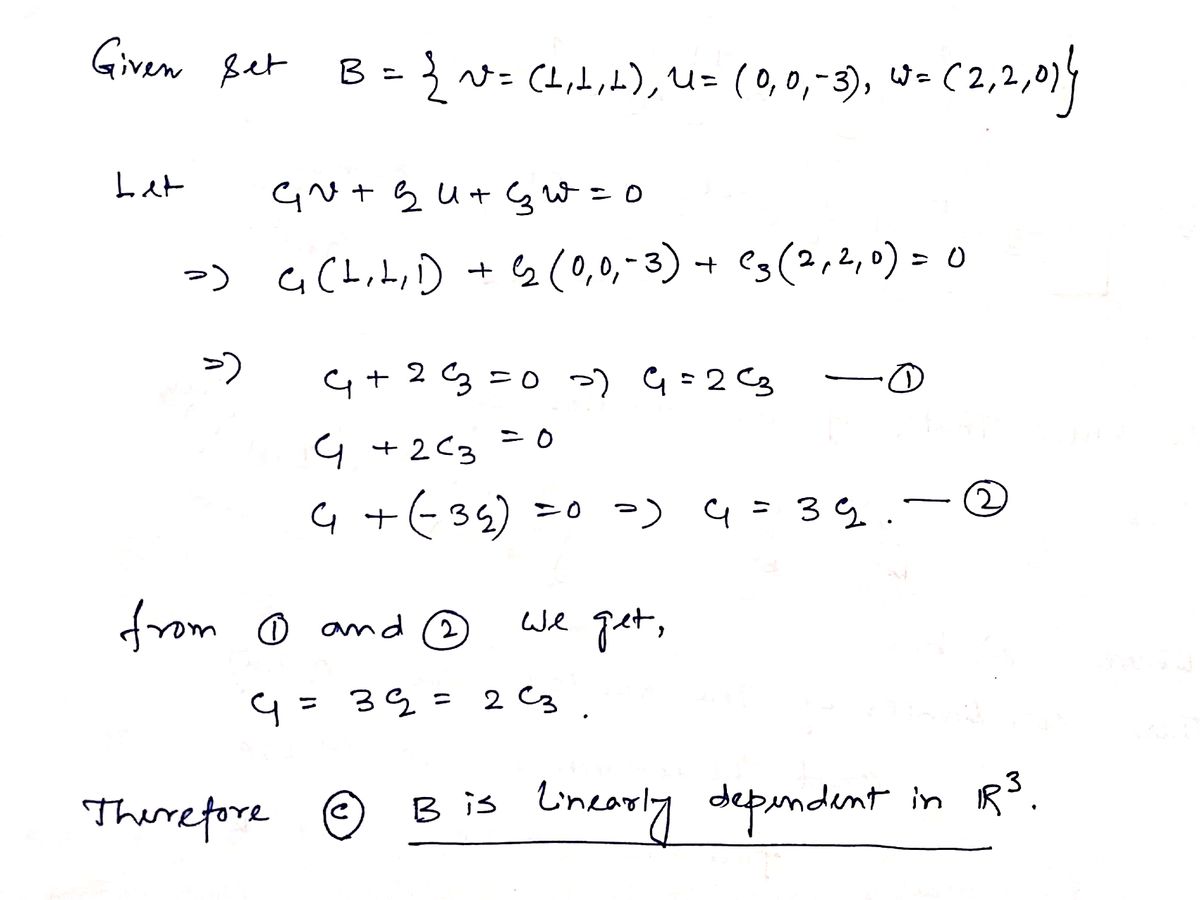 Given set B = { v = (1,1,1), u = (0,0,-3), w = (2,2,0)}
Let c₁v + c₂u + c₃w = 0
=> c₁(1,1,1) + c₂(0,0,-3) + c₃(2,2,0) = 0
=> c₁ + 2c₃ = 0 => c₁ = 2c₃ —①
c₁ + 2c₃ = 0
c₁ + (-3c₂) = 0 => c₁ = 3c₂. —②
from ① and ② we get,
c₁ = 3c₂ = 2c₃.
Therefore ⓒ B is linearly dependent in ℝ³.